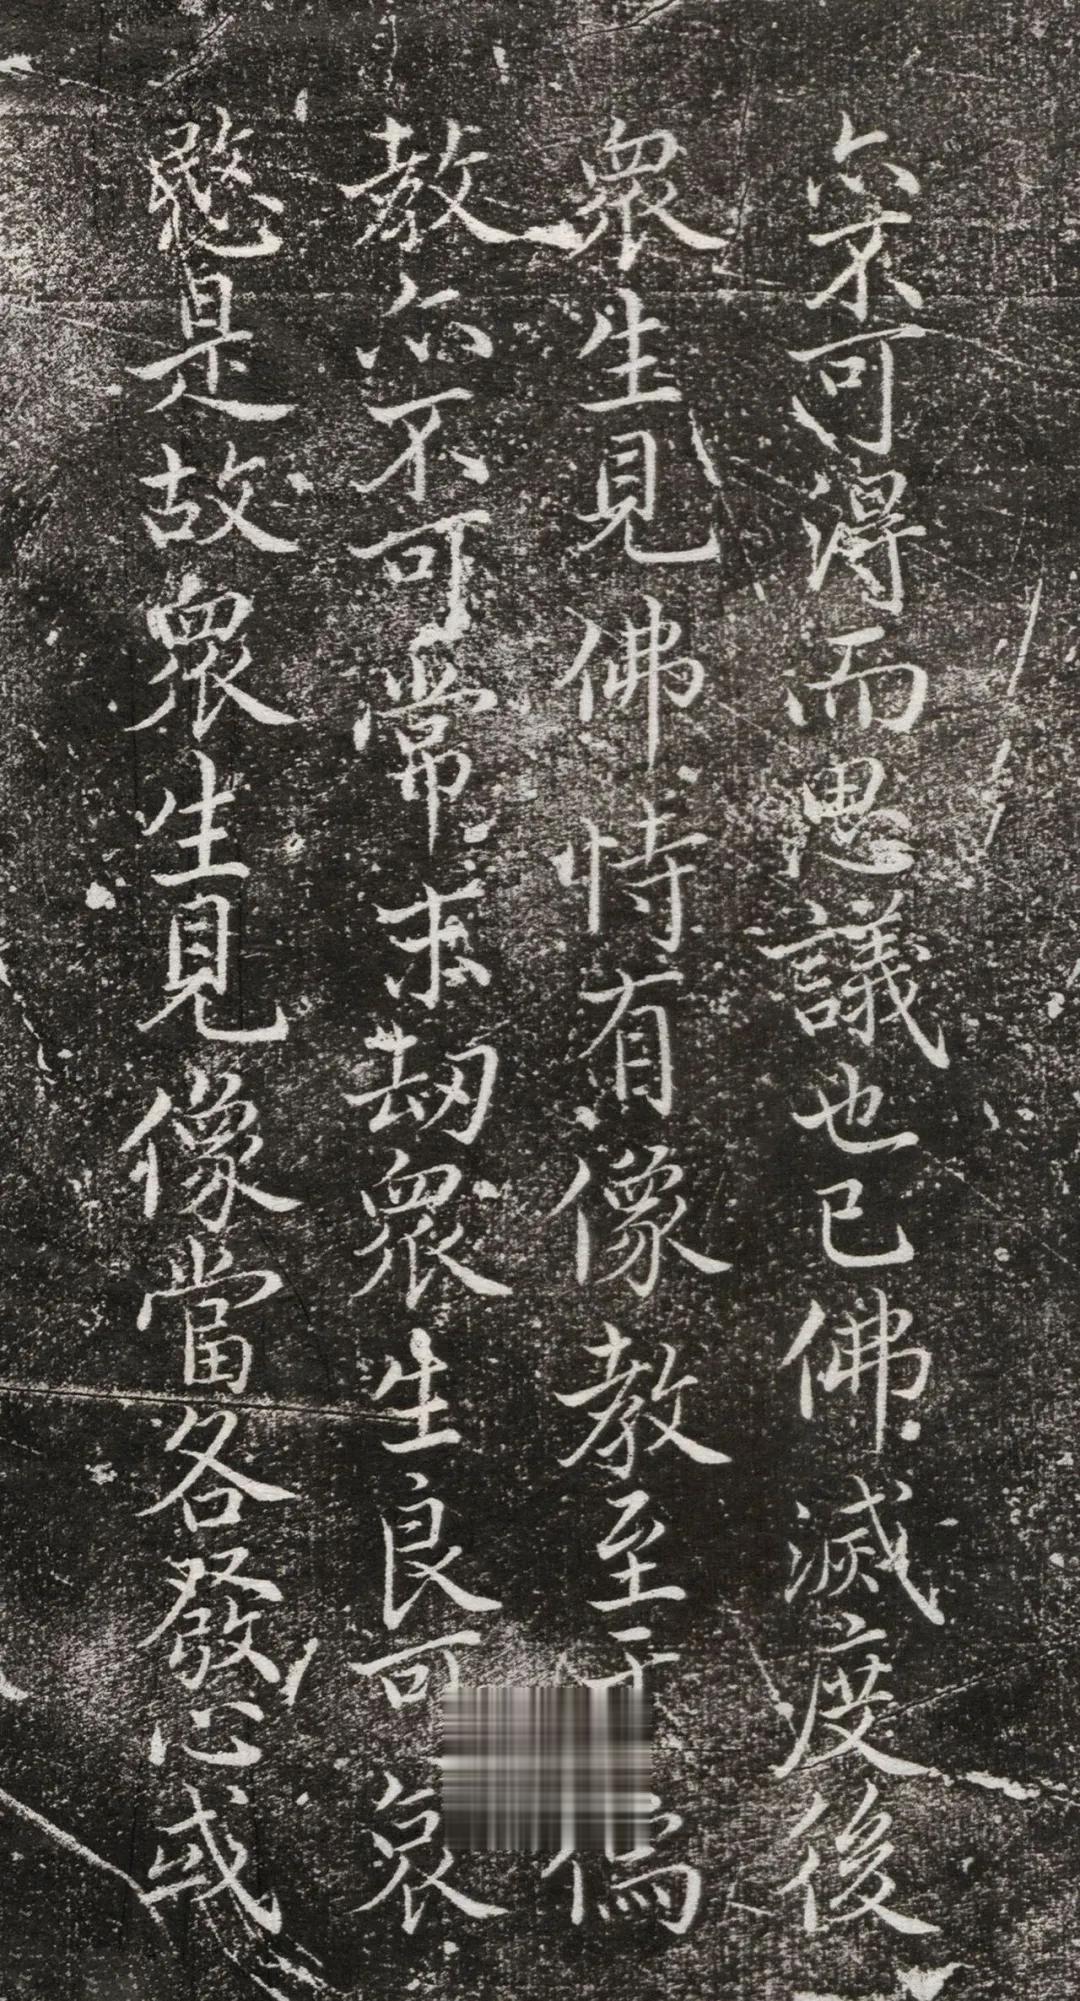 亦不可得而思議也已佛滅度後
衆生見佛恃有像教至于僞
教亦不可常求劫衆生良可哀
愍是故衆生見像當各發心或